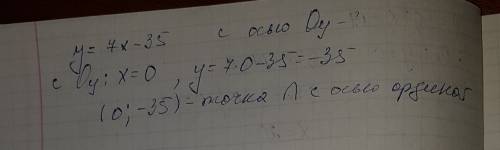 y = 7x - 35 с осью Oy -
с Oy: x = 0, y = 7·0 - 35 = -35
(0; -35) - точка ∩ с осью ординат